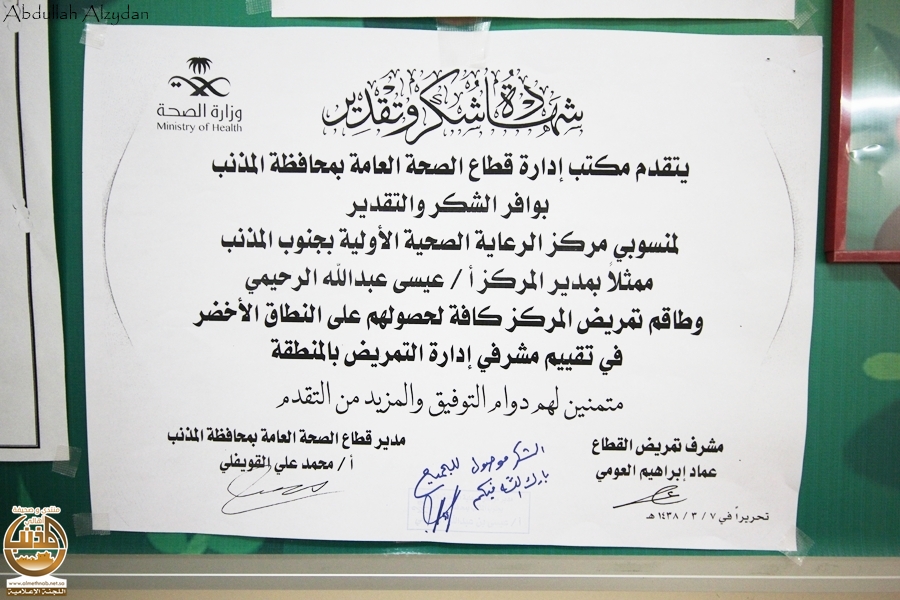 Abdullah Alzydan
وزارة الصحة
Ministry of Health
شهادة شكر وتقدير
يتقدم مكتب إدارة قطاع الصحة العامة بمحافظة المذنب
بوافر الشكر والتقدير
لمنسوبي مركز الرعاية الصحية الأولية بجنوب المذنب
ممثلاً بمدير المركز أ / عيسى عبدالله الرحيمي
وطاقم تمريض المركز كافة لحصولهم على النطاق الأخضر
في تقييم مشرفي إدارة التمريض بالمنطقة
متمنين لهم دوام التوفيق والمزيد من التقدم
مشرف تمريض القطاع
عماد إبراهيم العومي
مدير قطاع الصحة العامة بمحافظة المذنب
أ / محمد علي القويفلي
الشكر موصول للجميع
بارك الله فيكم
تحريراً في ٧ / ٣ / ١٤٣٨ هـ
منتدى و صحيفة
أهالي
المذنب
www.almethnab.net.sa
اللجنة الإعلامية